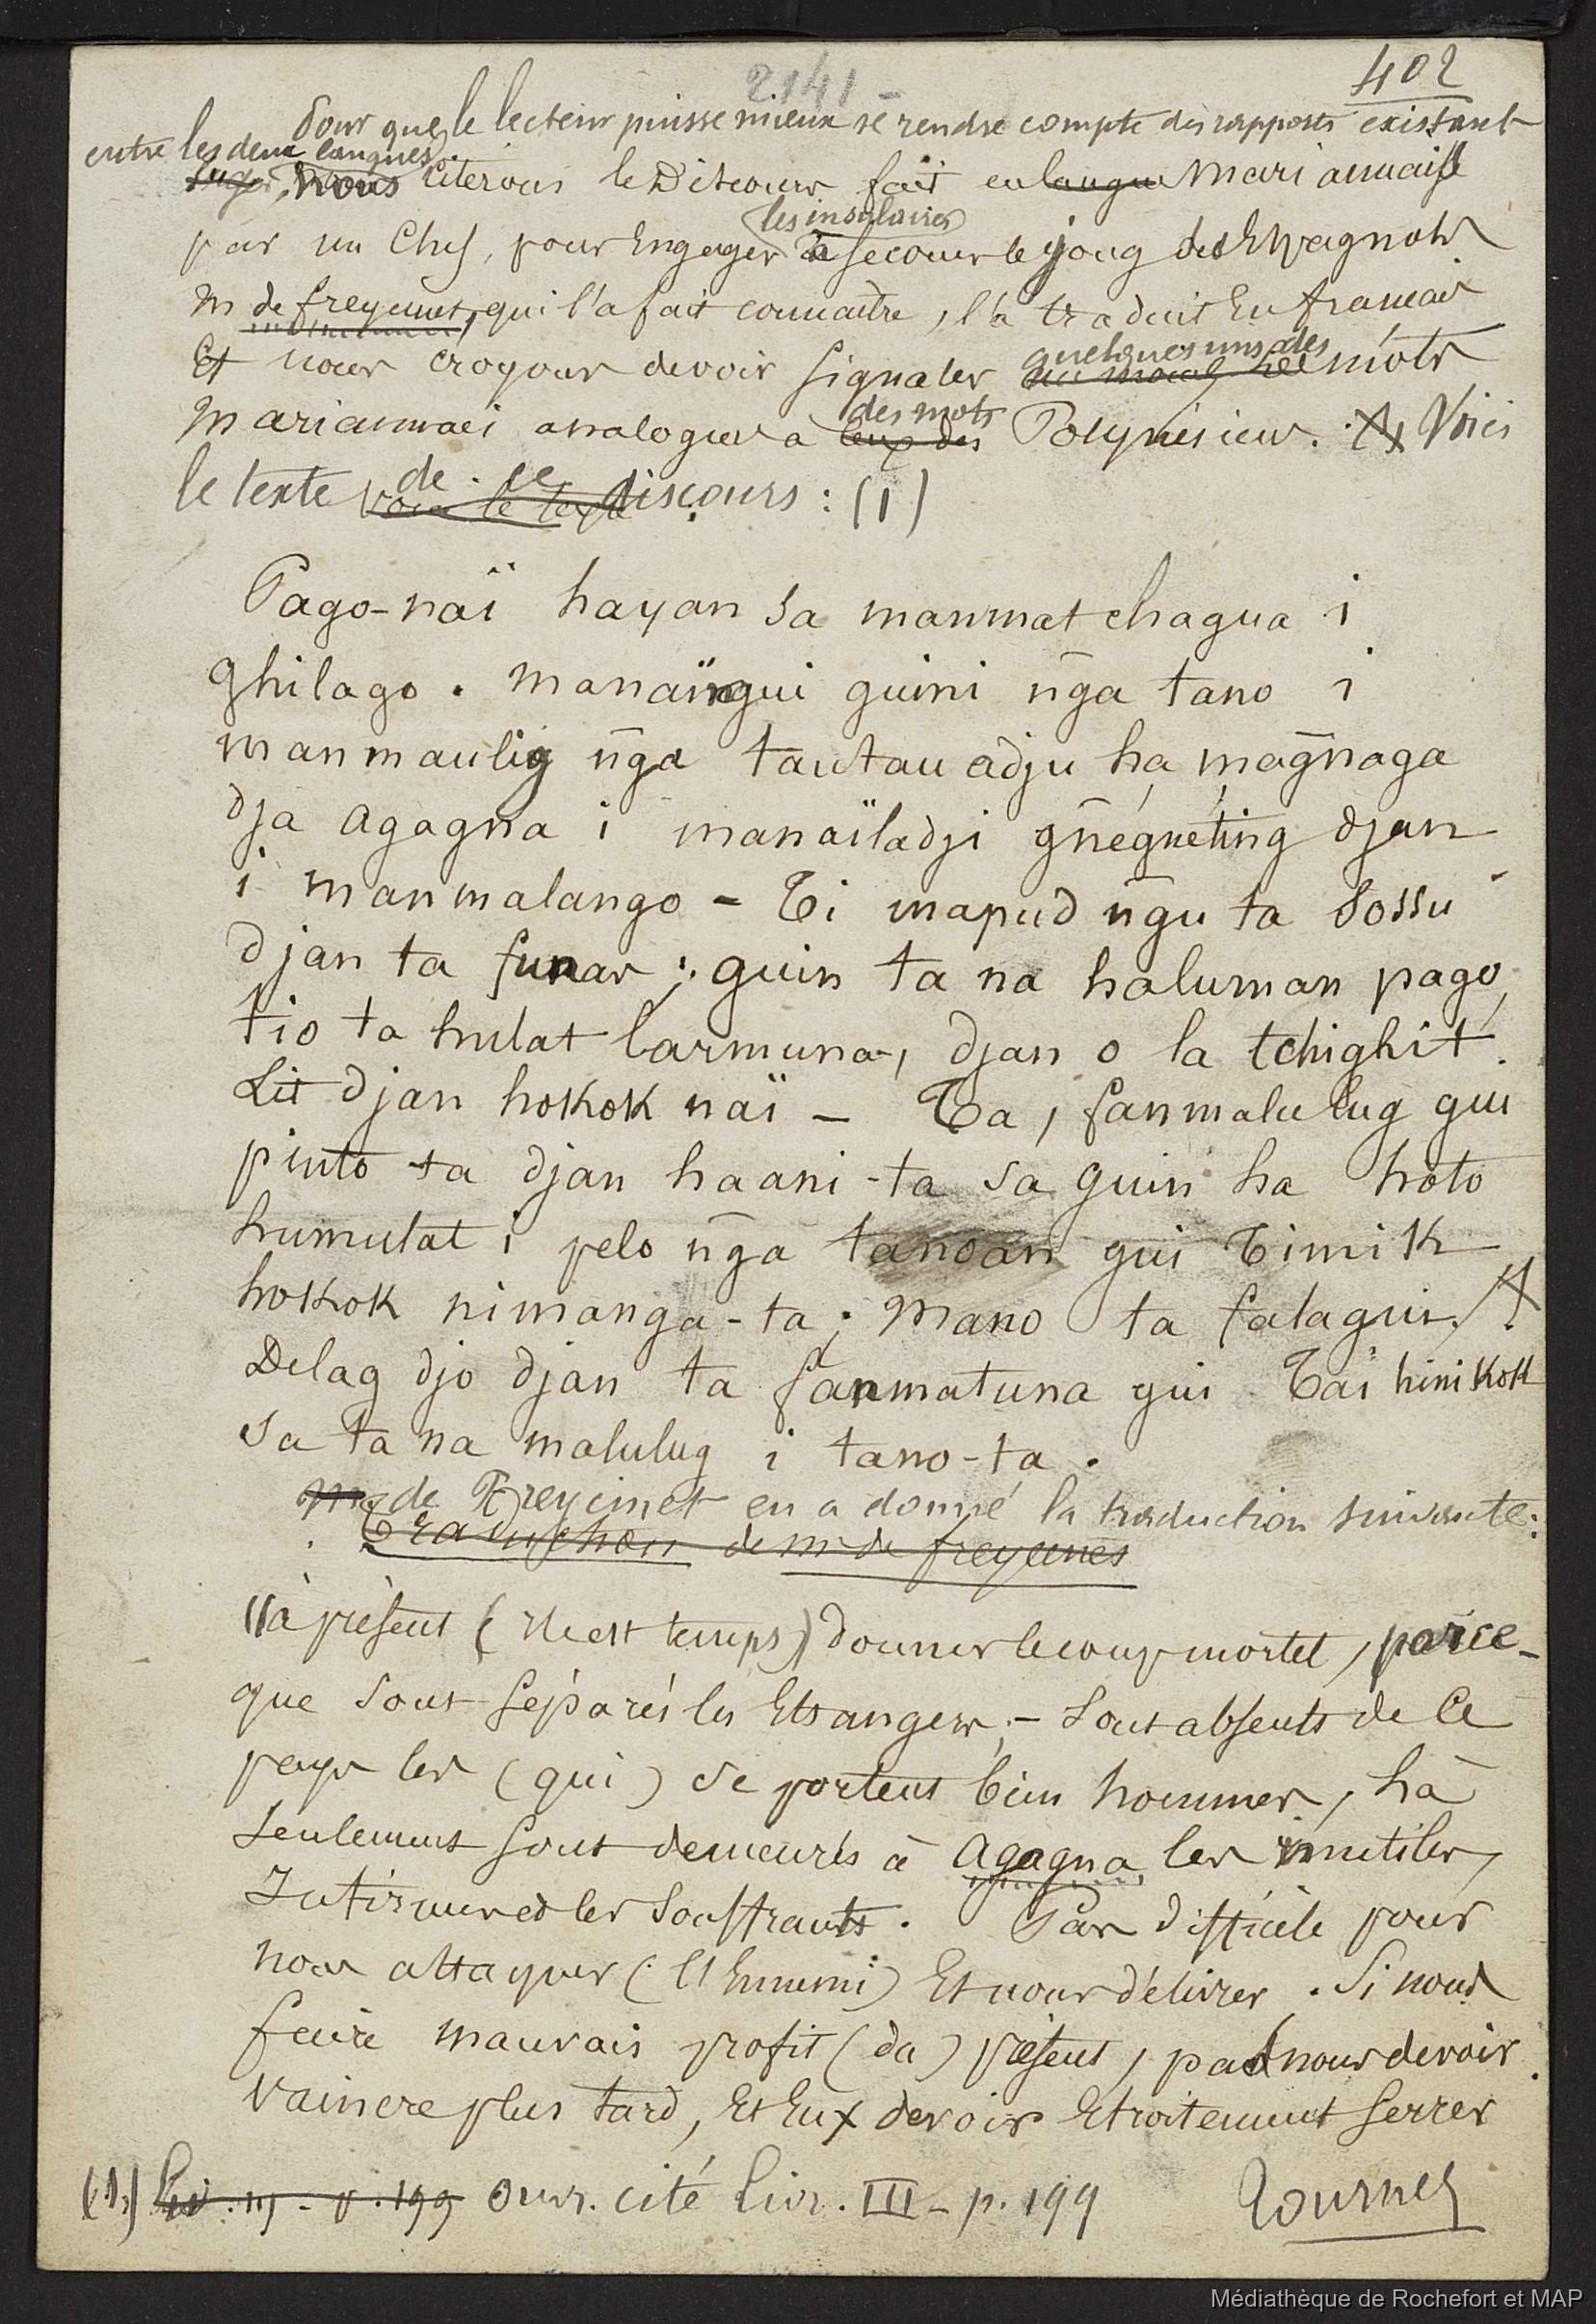 2141 -
402
Pour que le lecteur puisse mieux se rendre compte des rapports existant
entre les deux langues,
nous citerons le Discours fait en langue Mariannaise
par un Chef, pour Engager les insulaires à secouer le joug des Espagnols
M de freycinet, qui l'a fait connaître, l'a traduit En francais
Et nous croyons devoir signaler quelques uns des mots
Mariannais analogues a des mots Polynésiens. Voici
le texte de ce discours : (1)
Pago-naï hayan sa manmatchagua i
ghilago. manaïngui guini n̄ga tano i
manmaulig n̄ga tautau adju ha mag̃naga
dja agagna i manaïladji g̃négnéting djan
i manmalango - Ti mapud n̄gu ta sossu
djan ta funar ; guin ta na haluman pago,
tio ta hulat larmuna, djan o la tchighit.
Lit djan hokok naï - Ta, fanmalulug gui
pinto ta djan haani-ta sa guin ha hoto
humulat i pelo n̄ga tanoan gui Timik
hokok nimanga-ta ; Mano ta falagui !
Delag djo djan ta fanmatuna gui Taï hinikok
sa ta na malulug i tano-ta.
de Freycinet en a donné la traduction suivante :
Traduction de m de freycinet
"à présent (il est temps) donner le coup mortel, parce-
que sont séparés les Etrangers ; - sont absents de ce
pays les (qui) se portent bien hommes, là
seulement sont demeurés à Agagna les inutiles,
Infirmes et les souffrants. Pas difficile pour
nous attaquer (l'Ennemi) Et nous délivrer. Si nous
faire mauvais profit (du) présent, pas nous devoir
vaincre plus tard, Et Eux devoir Etroitement serrer
(1) Liv. III - p. 199 Ouvr. cité Liv. III - p. 199
Tournez
Médiathèque de Rochefort et MAP